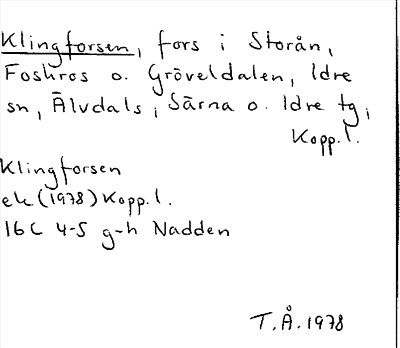 Klingforsen, fors i Storån,
Foskros o. Gröveldalen, Idre
sn, Älvdals, Särna o. Idre tg,
Kopp. l.
Klingforsen
ek (1978) Kopp. l.
16C 4-5 g-h Nadden
T. Å. 1978